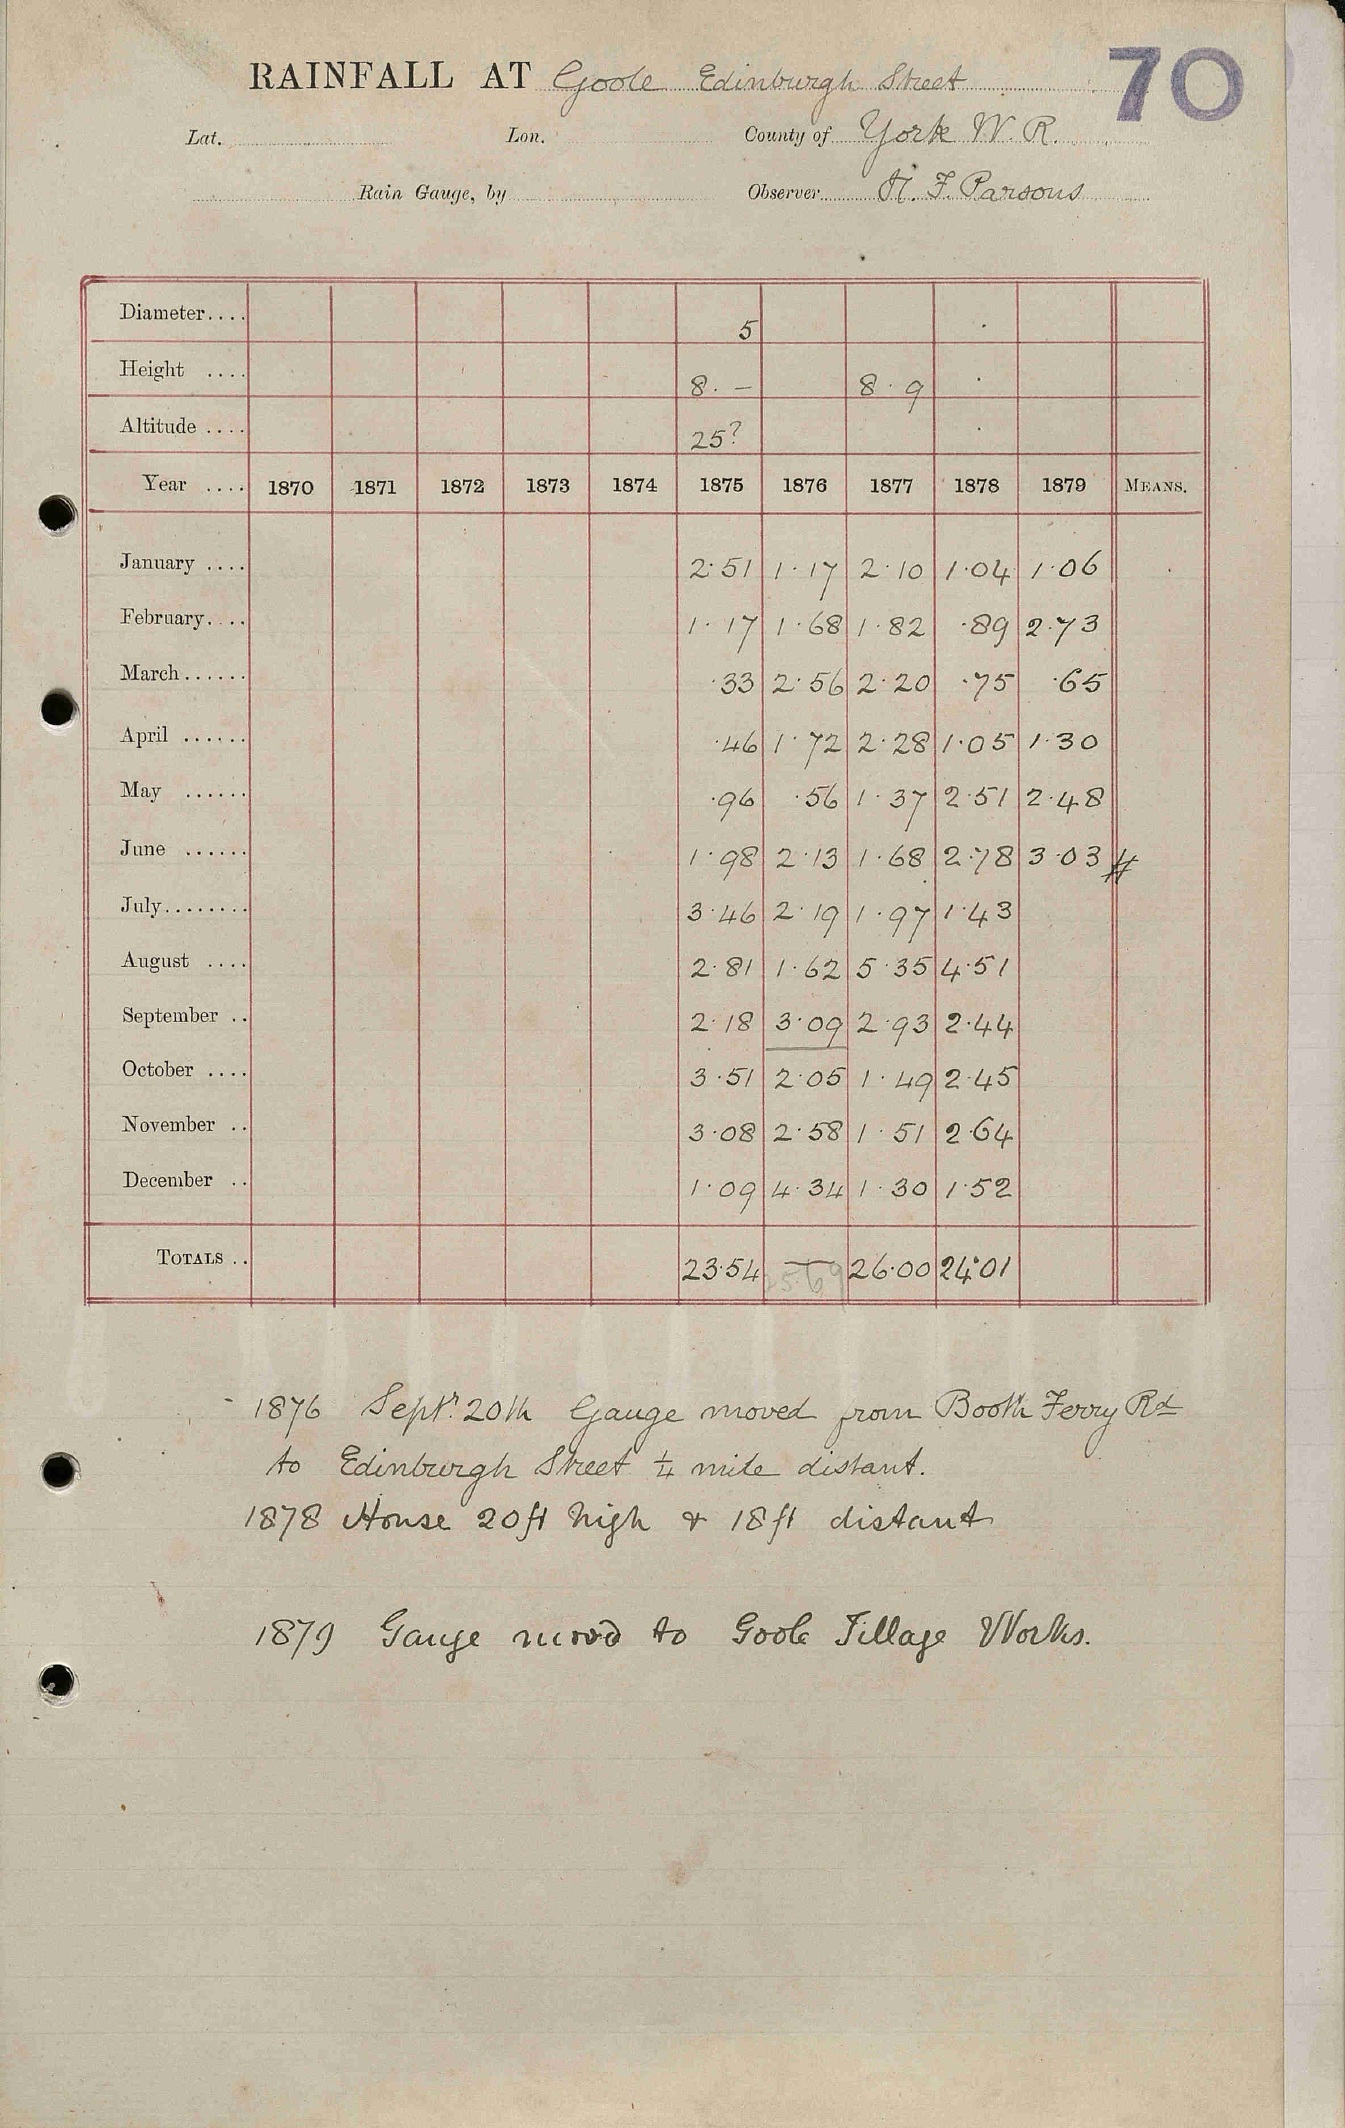 RAINFALL AT Goole Edinburgh Street 70
Lat. Lon. County of York W. R.
Rain Gauge, by Observer H. F. Parsons
Diameter.... 5
Height .... 8. – 8. 9
Altitude .... 25?
Year .... 1870 1871 1872 1873 1874 1875 1876 1877 1878 1879 MEANS.
January .... 2.51 1.17 2.10 1.04 1.06
February.... 1.17 1.68 1.82 .89 2.73
March...... .33 2.56 2.20 .75 .65
April ...... .46 1.72 2.28 1.05 1.30
May ...... .96 .56 1.37 2.51 2.48
June ...... 1.98 2.13 1.68 2.78 3.03 #
July........ 3.46 2.19 1.97 1.43
August .... 2.81 1.62 5.35 4.51
September .. 2.18 3.09 2.93 2.44
October .... 3.51 2.05 1.49 2.45
November .. 3.08 2.58 1.51 2.64
December .. 1.09 4.34 1.30 1.52
TOTALS .. 23.54 — 25.69 26.00 24.01
1876 Septr. 20th Gauge moved from Booth Ferry Rd
to Edinburgh Street ¼ mile distant.
1878 House 20ft high & 18ft distant
1879 Gauge moved to Goole Tillage Works.